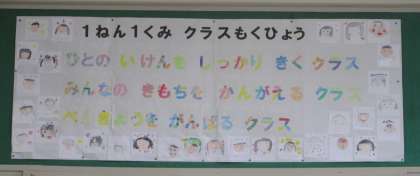 1ねん1くみ クラスもくひょう
ひとの いけんを しっかり きく クラス
みんなの きもちを かんがえる クラス
べんきょうを がんばる クラス